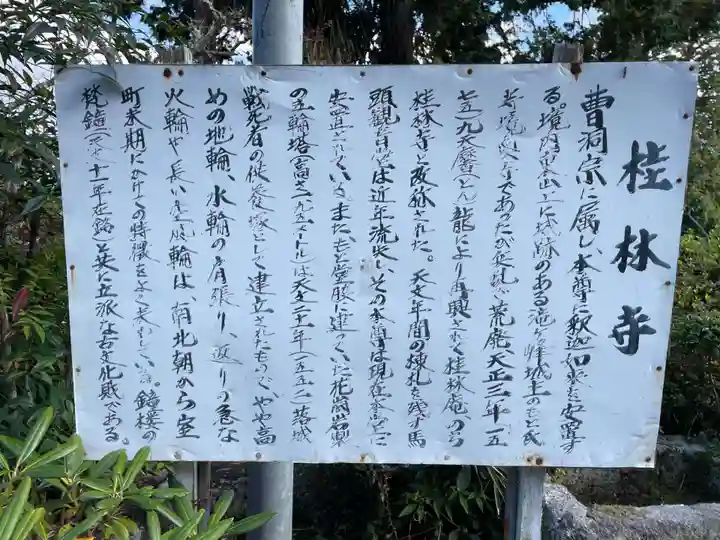 桂林寺
曹洞宗に属し、本尊に釈迦如来を安置す
る。境内東山上に城跡のある滝ヶ峰城主のもと氏
寺境
寺であったが
荒廃、天正三年(一五
七五)九天摩(とん)龍により再興されて桂林庵のち
桂林寺と改称された。天文年間の棟札を残す馬
頭観音堂は近年流失し、その本尊は現在本堂に
安置されている。また、もと
に建っていた花崗岩製
の五輪塔(高さ一、九五メートル)は天文二十一年(一五五二)落城
戦死者の供養塔として建立されたもので、やや高
めの地輪、水輪の肩張り、返りの急な
火輪や長い空風輪は、南北朝から室
町末期にかけての特徴をよく表わしている。鐘楼の
梵鐘(天文十一年在銘)と共に立派な古文化財である。